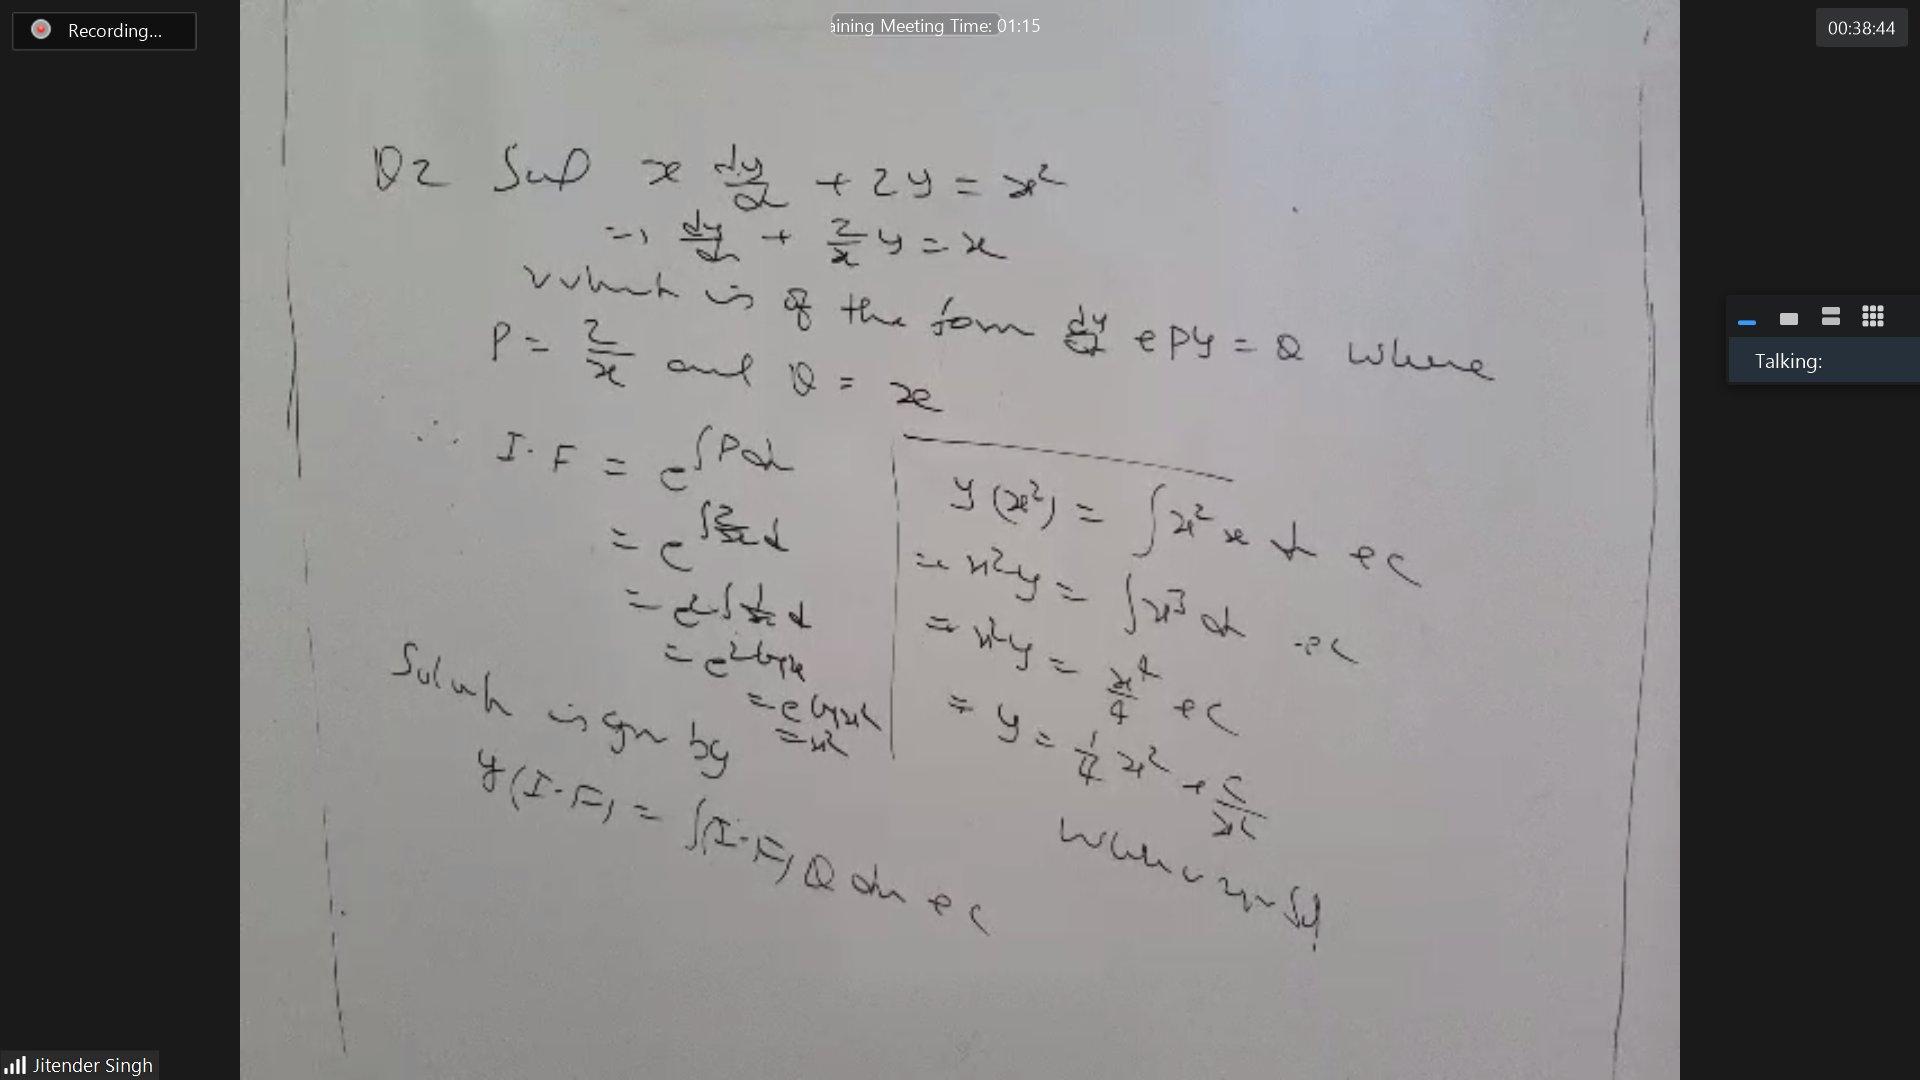 Recording...
aining Meeting Time: 01:15
00:38:44
Talking:
Q2 Sol x dy/dx + 2y = x²
=> dy/dx + 2/x y = x
which is of the form dy/dx + Py = Q where
P = 2/x and Q = x
∴ I.F = e^∫P dx
= e^∫2/x dx
= e^2∫1/x dx
= e^2 log x
= e^log x²
= x²
Solution is given by
y(I.F) = ∫(I.F) Q dx + C
y(x²) = ∫x² x dx + C
= x²y = ∫x³ dx + C
= x²y = x⁴/4 + C
= y = 1/4 x² + C/x²
which is
Jitender Singh